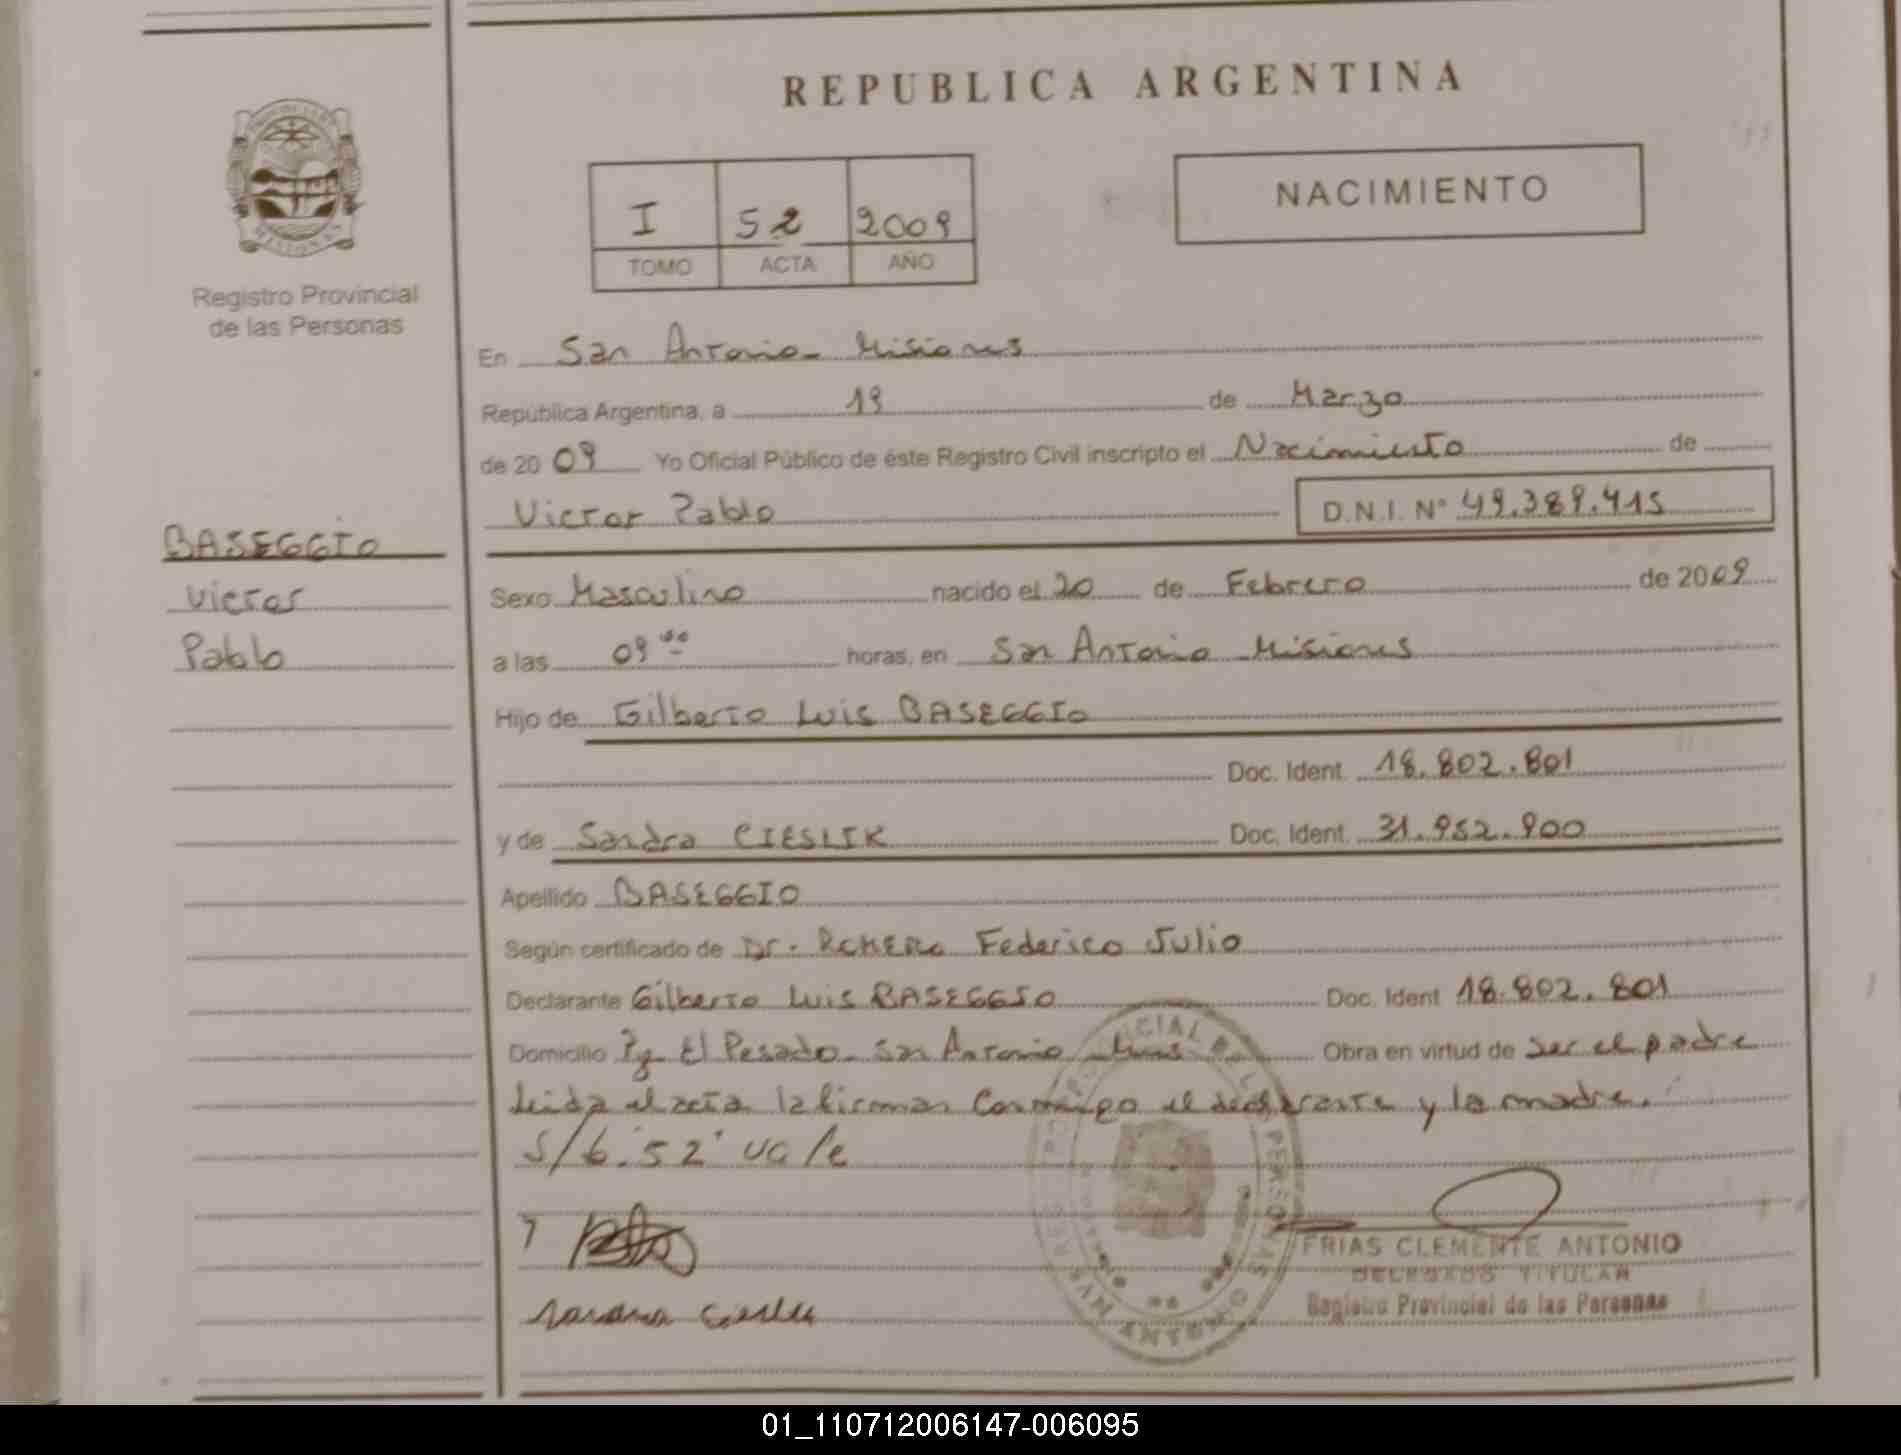 REPUBLICA ARGENTINA
NACIMIENTO
I 52 2009
TOMO ACTA AÑO
Registro Provincial
de las Personas
En San Antonio - Misiones
República Argentina, a 19 de Marzo
de 20 09 Yo Oficial Público de éste Registro Civil inscripto el Nacimiento de
Victor Pablo D.N.I. Nº 49.389.415
BASEGGIO
Victor
Pablo
Sexo Masculino nacido el 20 de Febrero de 2009
a las 09 horas, en San Antonio Misiones
Hijo de Gilberto Luis BASEGGIO
Doc. Ident. 18.802.801
y de Sandra CIESLIK Doc. Ident. 31.952.900
Apellido BASEGGIO
Según certificado de Dr. ROMERO Federico Julio
Declarante Gilberto Luis BASEGGIO Doc. Ident 18.802.801
Domicilio Pje El Pesado - San Antonio - Mnes Obra en virtud de Ser el padre
Leida el acta la firman Conmigo el declarante y la madre.
S/b. 52 vale
FRIAS CLEMENTE ANTONIO
DELEGADO TITULAR
Registro Provincial de las Personas
SAN ANTONIO
01_110712006147-006095